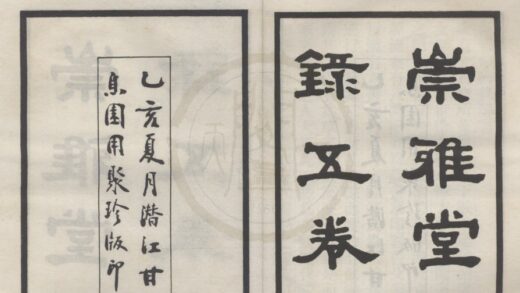 崇雅堂
錄五卷
乙亥夏月潛江甘
息園用聚珍版印